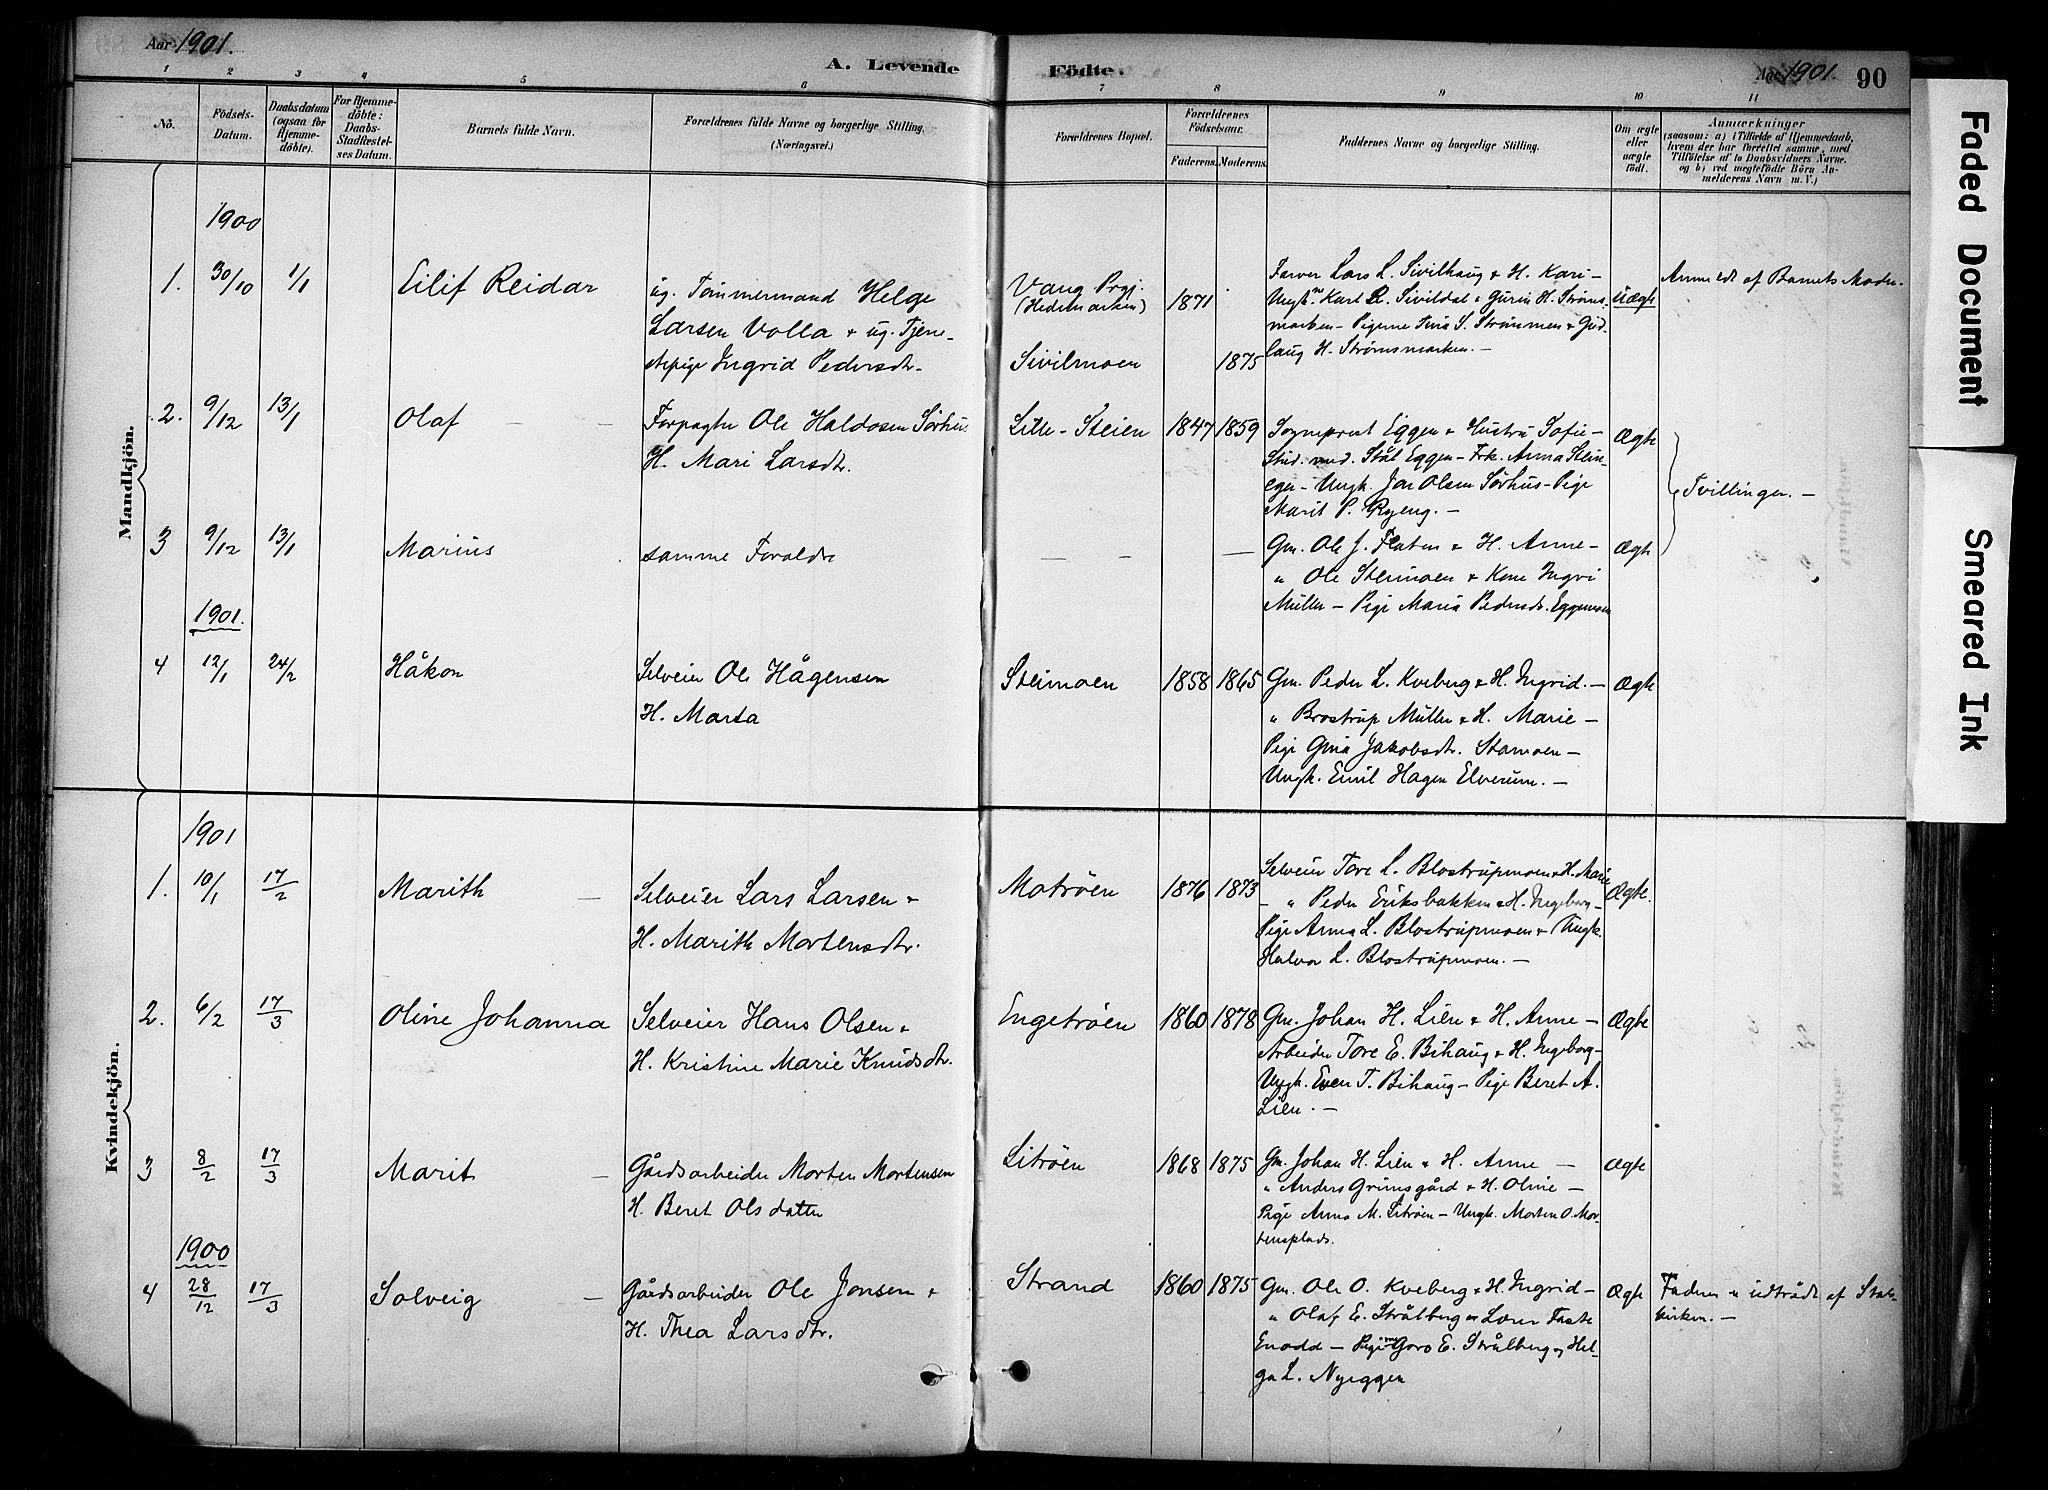 Aar 1901.
A. Levende Födte.
Aar 1901. 90
1 2 3 4 5 6 7 8 9 10 11
No.
Födsels-Datum.
Daabsdatum (ogsaa for Hjemmedöbte).
For Hjemmedöbte: Daabs-Stadfæstelses Datum.
Barnets fulde Navn.
Forældrenes fulde Navne og borgerlige Stilling. (Næringsvei.)
Forældrenes Bopæl.
Forældrenes Födselsaar.
Faderens. Moderens.
Faddernes Navne og borgerlige Stilling.
Om ægte eller uægte födt.
Anmærkninger
(saasom: a) i Tilfælde af Hjemmedaab, hvem der har forrettet samme, med Tilföielse af to Daabsvidners Navne. og b) ved uægtefödte Börn Anmelderens Navn m. V.)
Mandkjön.
1900
1. 30/10 1/1 Eilif Reidar
ug. Tömmermand Helge
Larsen Volla & ug. Tjene-
stepige Ingrid Pedersdtr.
Vang Prgj.
(Hedemarken) 1871
Sivilmoen 1875
Farver Lars L. Sivilhaug & H. Kari –
Ungkm Karl R. Sivildal & Guri H. Ströms-
marken – Pigerne S. Strömmen & Gud-
laug H. Strömsmarken. –
Uægte
Anmeldt af Barnets Moder.
2. 9/12 13/1 Olaf – –
Forpagter Ole Haldosen Sörhus
H. Mari Larsdtr.
Lille-Steien 1847 1859
Sogneprest Eggen & Hustru Sofie –
Stud. med. Stål Eggen – Frk. Anna Stein-
eger – Ungk. Jon Olsen Sörhus – Pige
Marit P. Ryeng. –
Ægte
Tvillinger. –
3 9/12 13/1 Marius –
samme Foraldre
– – –
Gm. Ole J. Flaten & H. Anne –
" Ole Steimoen & Kone Ingri
Müller – Pige Maria Pedersdt. Eggenmoen
Ægte
1901.
4 12/1 24/2 Håkon
Selveier Ole Hågensen
H. Marta
Steimoen 1858 1865
Gm. Peder L. Kveberg & H. Ingrid. –
" Brostrup Müller & H. Marie –
Pige Gina Jakobsdtr. Stamoen –
Ungk. Emil Hagen Elverum. –
Ægte
Kvindekjön.
1901
1. 10/1 17/2 Marith –
Selveier Lars Larsen &
H. Marith Mortensdtr.
Moträen 1876 1873
Selveier Tore L. Blostrupmoen & H. Marie
– " Peder Eriksbakken & H. Ingeborg –
Pige Anna L. Blostrupmoen & Ungk.
Halvor L. Blostrupmoen. –
Ægte.
2. 6/2 17/3 Oline Johanna
Selveier Hans Olsen &
H. Kristine Marie Knudsdtr.
Engetröen 1860 1878
Gm. Johan H. Lien & H. Anne –
Arbeider Tore E. Bihaug & H. Ingeborg –
Ungk. Even T. Bihaug – Pige Beret A.
Lien. –
Ægte
3 8/2 17/3 Marit –
Gårdsarbeider Morten Mortensen
H. Beret Olsdatter
Liträen 1868 1875
Gm. Johan H. Lien & H. Anne –
" Anders Grimsgård & H. Oline –
Pige Anna M. Liträen – Ungk. Morten O. Mor-
tensplads.
Ægte
1900
4 28/12 17/3 Solveig –
Gårdsarbeider Ole Jonsen &
H. Thea Larsdtr.
Strand 1860 1875
Gm. Ole O. Kveberg & H. Ingrid –
" Olaf E. Strålberg & Lærer Faste
– Pigerne Goro E. Strålberg og Hel-
ga L. Nyeggen
Ægte
Faderen er udtrådt af Stats-
kirken. –
Faded Document
Smeared Ink